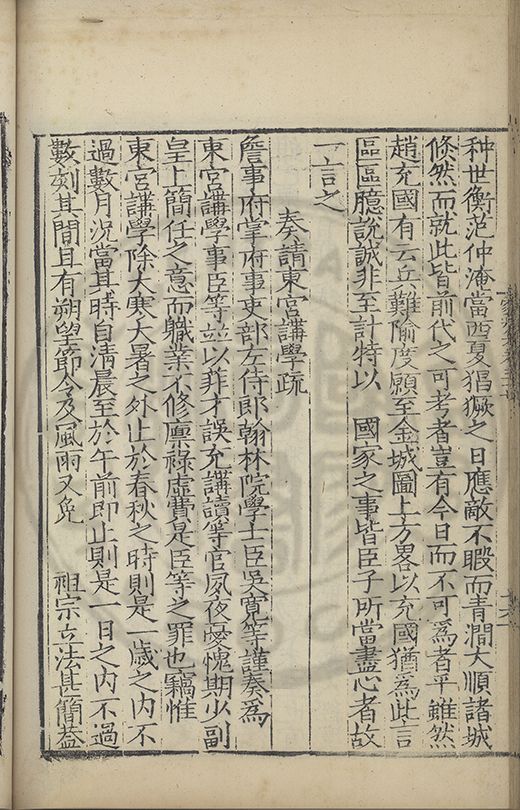 种世衡范仲淹當西夏猖獗之日應敵不暇而青澗大順諸城
倐然而就此皆前代之可考者豈有今日而不可為者乎雖然
趙充國有云兵難隃度願至金城圖上方畧以充國猶為此言
區區臆說誠非至計特以 國家之事皆臣子所當盡心者故
一言之
奏請東宮講學疏
詹事府掌府事吏部左侍郎翰林院學士臣吳寬等謹奏為
東宮講學事臣等並以菲才誤充講讀等官夙夜憂愧期少副
皇上簡任之意而職業不修廪祿虛費是臣等之罪也竊惟
東宮講學除大寒大暑之外止於春秋之時則是一歲之内不
過數月況當其時自清晨至於午前即止則是一日之内不過
數刻其間且有朔望節令及風雨又免 祖宗立法甚簡葢